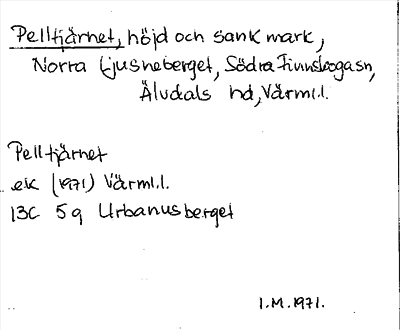 Pelltjärnet, höjd och sank mark,
Norra Ljusneberget, Södra Finnskogasn,
Älvdals hd, Värml.l.
Pelltjärnet
ek (1971) Värml.l.
13C 5g Urbanusberget
I.M.1971.